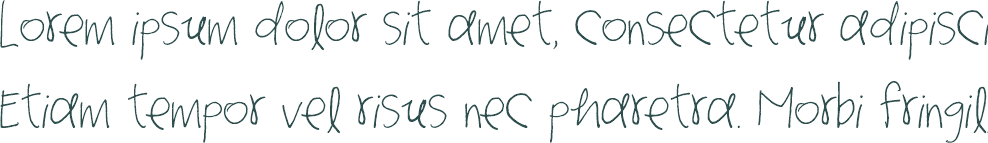 Lorem ipsum dolor sit amet, consectetur adipisci
Etiam tempor vel risus nec pharetra. Morbi fringil